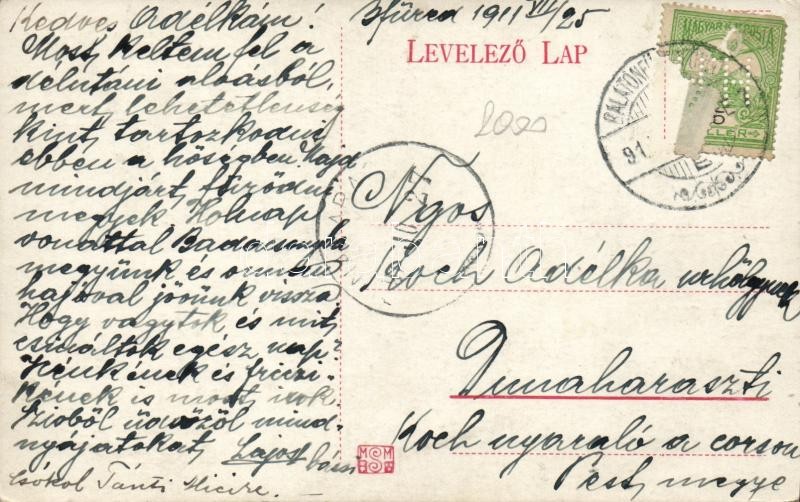 Kedves Adélkám!
Most keltem fel a
délutáni alvásból,
mert lehetetlenség
kint tartozkodni
ebben a hőségben. Majd
mindjárt fürödni
megyek. Holnap
vonattal Badacsonyba
megyünk és onnan
hajóval jövünk vissza
Hogy vagytok és mit
csináltok egész nap?
is most irok
Szívből üdvözöl mind-
nyájatokat, Lajos bácsi
Csókol Tánti
Bfüred 1911 VII/25
LEVELEZŐ LAP
MAGYAR KIR. POSTA
FILLÉR
BALATONF
91
Ngos
Koch Adélka urhölgynek
Dunaharaszti
Koch nyaraló a corson
Pest megye